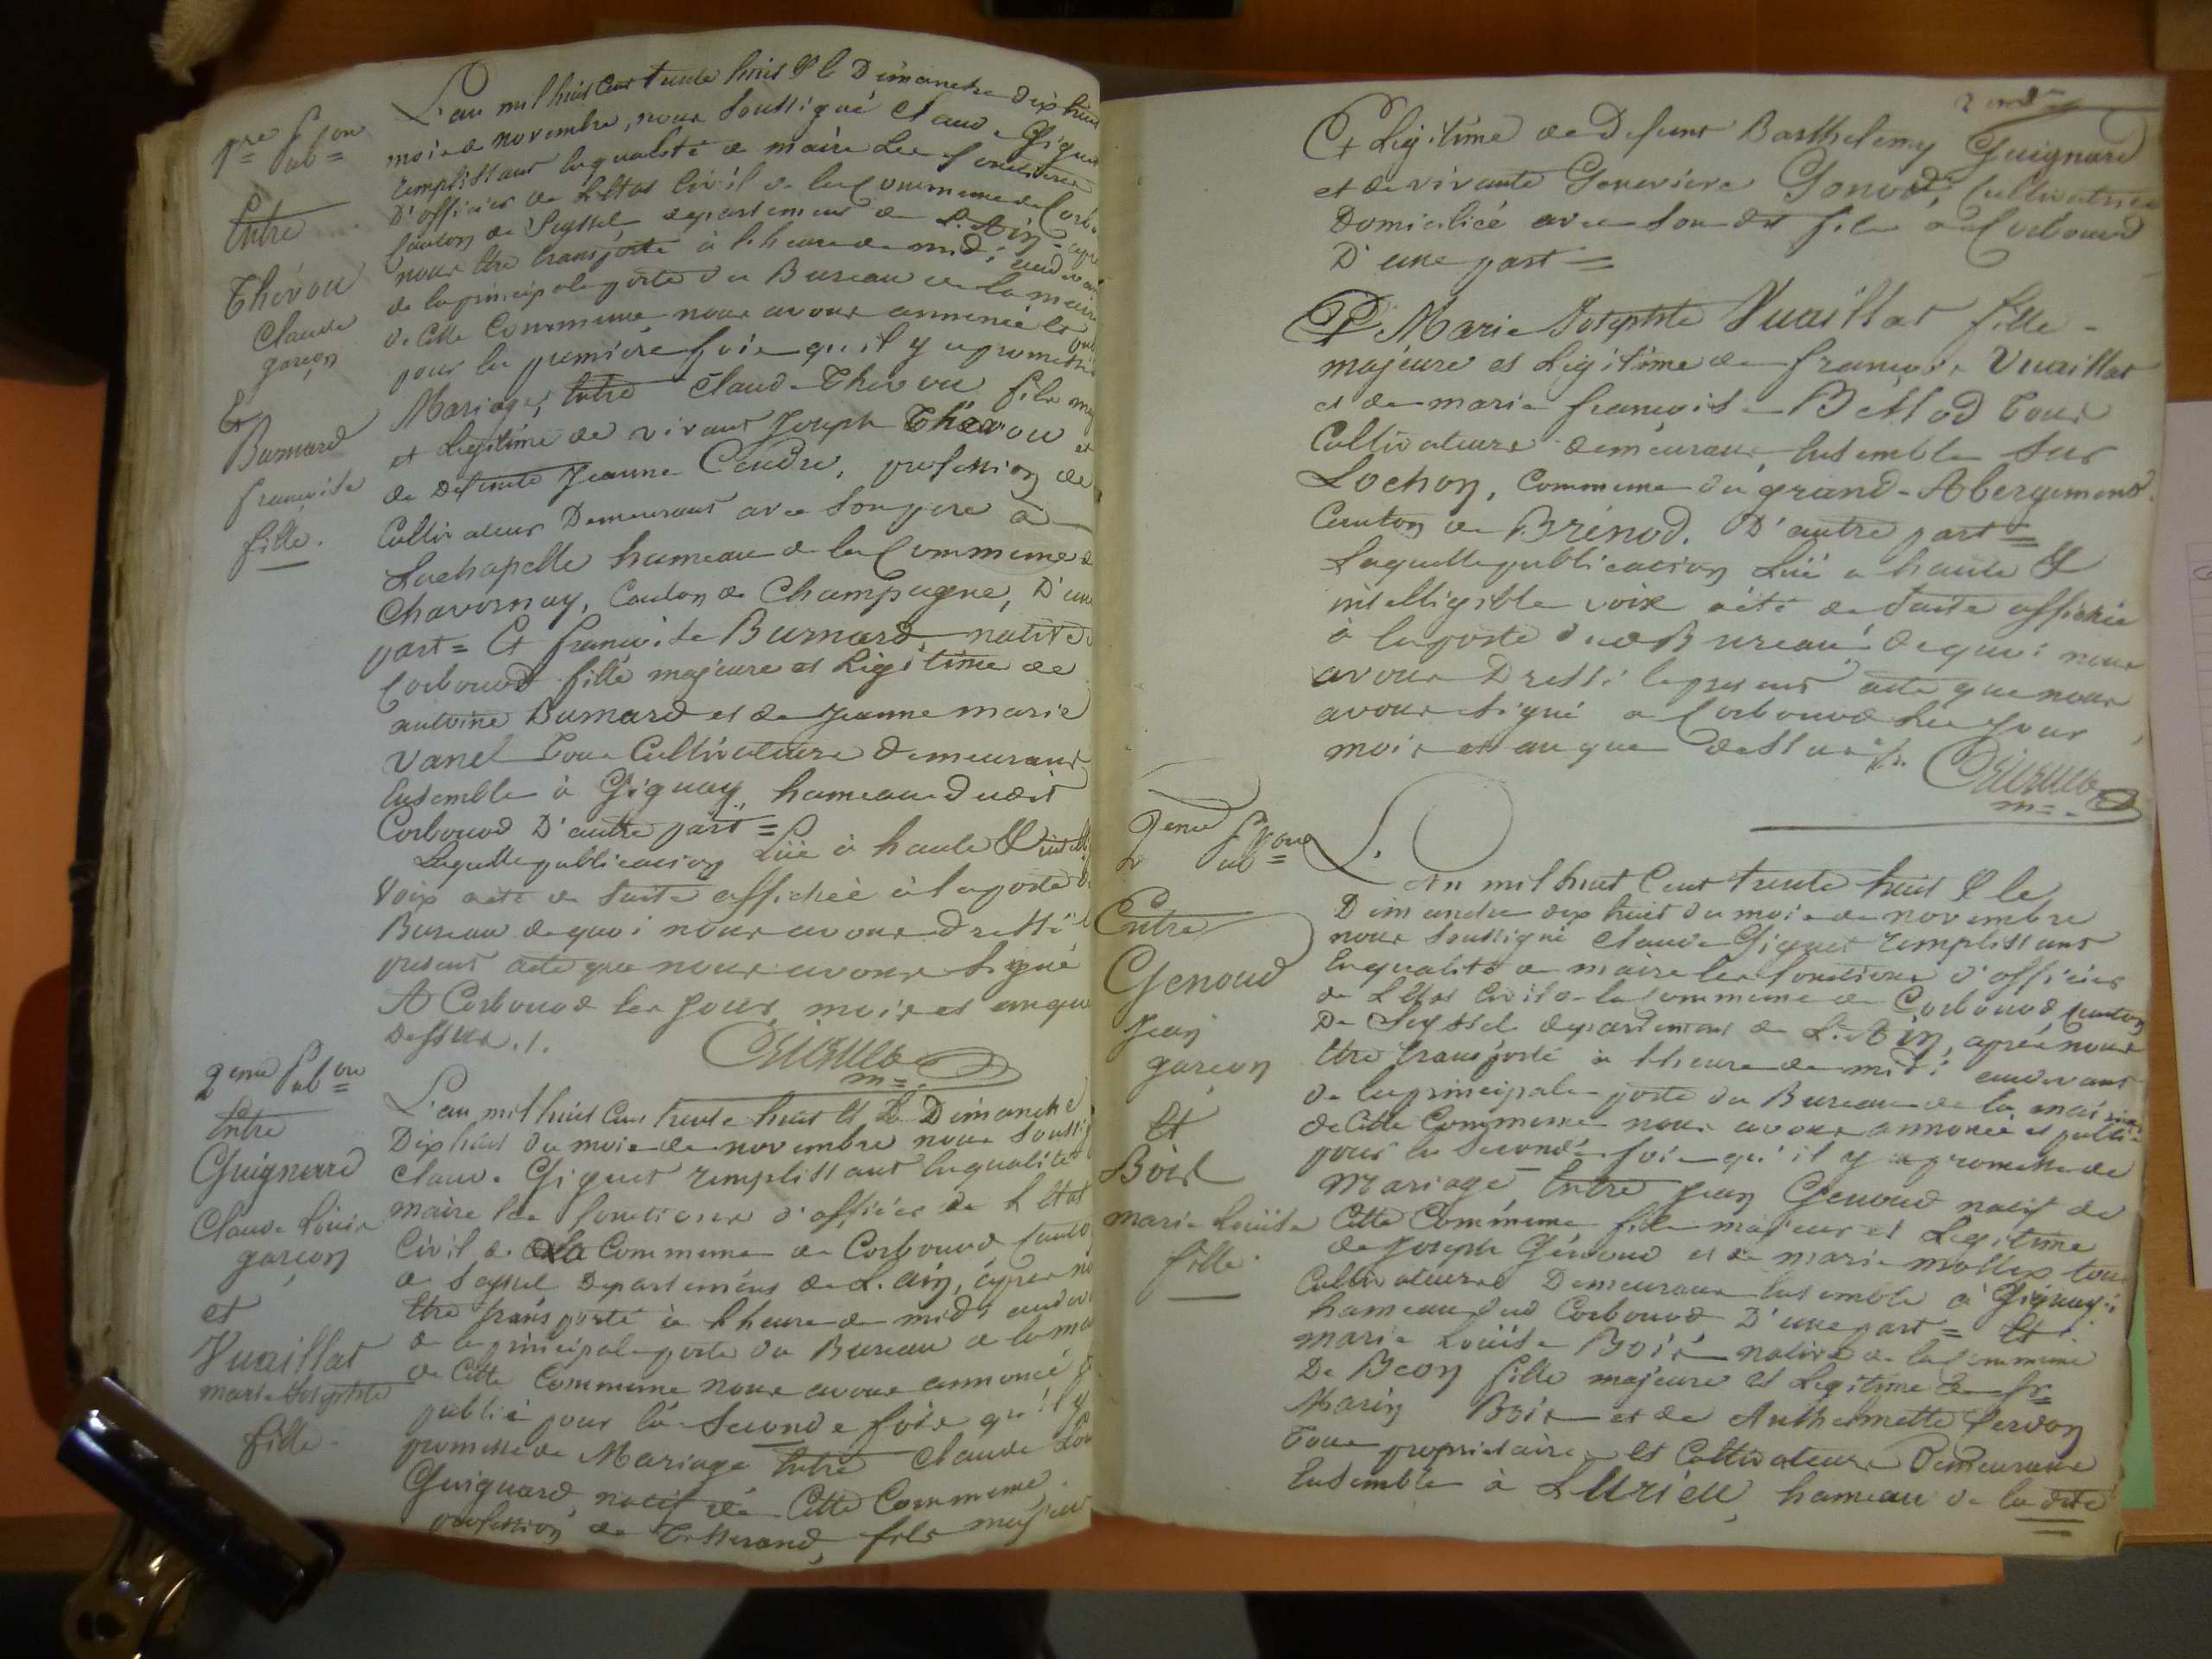 1re Pub.on
Entre
Thévou
Claude
garçon
Et
Burnard
françoise
fille.
L'an mil huit Cent trente huit & le Dimanche dix huit
mois de novembre, nous Soussigné Claude Giguet
remplissant la qualité de maire Les fonctions
D'officier de L'Etat Civil de la Commune de Corb
Canton de Seyssel, departement de L'Ain, apr
nous être transporté à l'heure de midi audevan
de la principale porte du Bureau de la mairie
de Cette Commune nous avons annoncé et
pour la première fois qu'il y a promesse
Mariage, Entre Claude Thévou fils maj
et Legitime de vivant Joseph Thévou et
de Defunte Jeanne Coudre, profession de
Cultivateur Demeurant avec Son pere à
Lachapelle hameau de la Commune de
Chavornay, Canton de Champagne, D'une
part = Et françoise Burnard native de
Corbonod fille majeure et Legitime de
antoine Burnard et de Jeanne marie
Vanel Tous Cultivateurs Demeurant
Ensemble à Gignay, hameau dudit
Corbonod D'autre part =
Laquelle publication Lüe à haute & intelli
Voix a été de Suite affichée à la porte du
Bureau de quoi nous avons dressé le
present acte que nous avons Signé
A Corbonod les jour, mois et an que
Dessus ./.
m=.
2eme Pub.on
Entre
Guignard
Claude Louis
garçon
et
Vuaillat
marie Josephte
fille.
L'an mil huit Cent trente huit et le Dimanche
Dix huit du mois de novembre nous Soussig
Claude Giguet remplissant la qualité
maire les fonctions d'officier de L'Etat
Civil de la Commune de Corbonod Canto
de Seyssel Departement de L'ain, après no
être transporté à l'heure de midi audeva
de la principale porte du Bureau de la ma
de Cette Commune nous avons annoncé
publié pour la Seconde fois qu'il y
promesse de Mariage Entre Claude Lou
Guignard, natif de Cette Commune,
profession de Tisserand, fils majeur
Et Legitime de Defunt Barthelemy Guignard
et de vivante Genevieve Gonod, Cultivatrice
Domiciliée avec Son dit fils à Corbonod
D'une part =
Et Marie Josephte Vuaillat fille
majeure et Legitime de françois Vuaillat
et de marie françoise Bellod Tous
Cultivateurs demeurant Ensemble Sur
Lochon, Commune du grand-Abergement
Canton de Brénod. D'autre part =
Laquelle publication Lüe a haute &
intelligible voix a été de Suite affichée
à la porte dudt Bureau, de quoi nous
avons Dressé le present acte que nous
avons Signé a Corbonod Les jour
mois et an que dessus ./.
m=.
2eme Pub.on
Entre
Genoud
Jean
garçon
Et
Bois
marie Louise
fille.
L'
An mil huit Cent trente huit & le
Dimanche dix huit du mois de novembre
nous Soussigné Claude Giguet remplissant
la qualité de maire les fonctions d'officier
de L'Etat Civil de la Commune de Corbonod Canton
De Seyssel departement de L'Ain, après nous
être transporté à l'heure de midi audevant
de la principale porte du Bureau de la mairie
de Cette Commune nous avons annoncé et publié
pour la Seconde fois qu'il y a promesse de
Mariage, Entre Jean Genoud natif de
Cette Commune fils majeur et Legitime
de Joseph Génoud et de marie mollex tous
Cultivateurs Demeurant Ensemble à Gignay
hameau dud Corbonod D'une part = Et
marie Louise Bois native de la Commune
De Beon fille majeure et Legitime de
Marin Bois et de Anthelmette Pervon
Tous proprietaires et Cultivateurs Demeurant
Ensemble à LUriéU, hameau de la dite